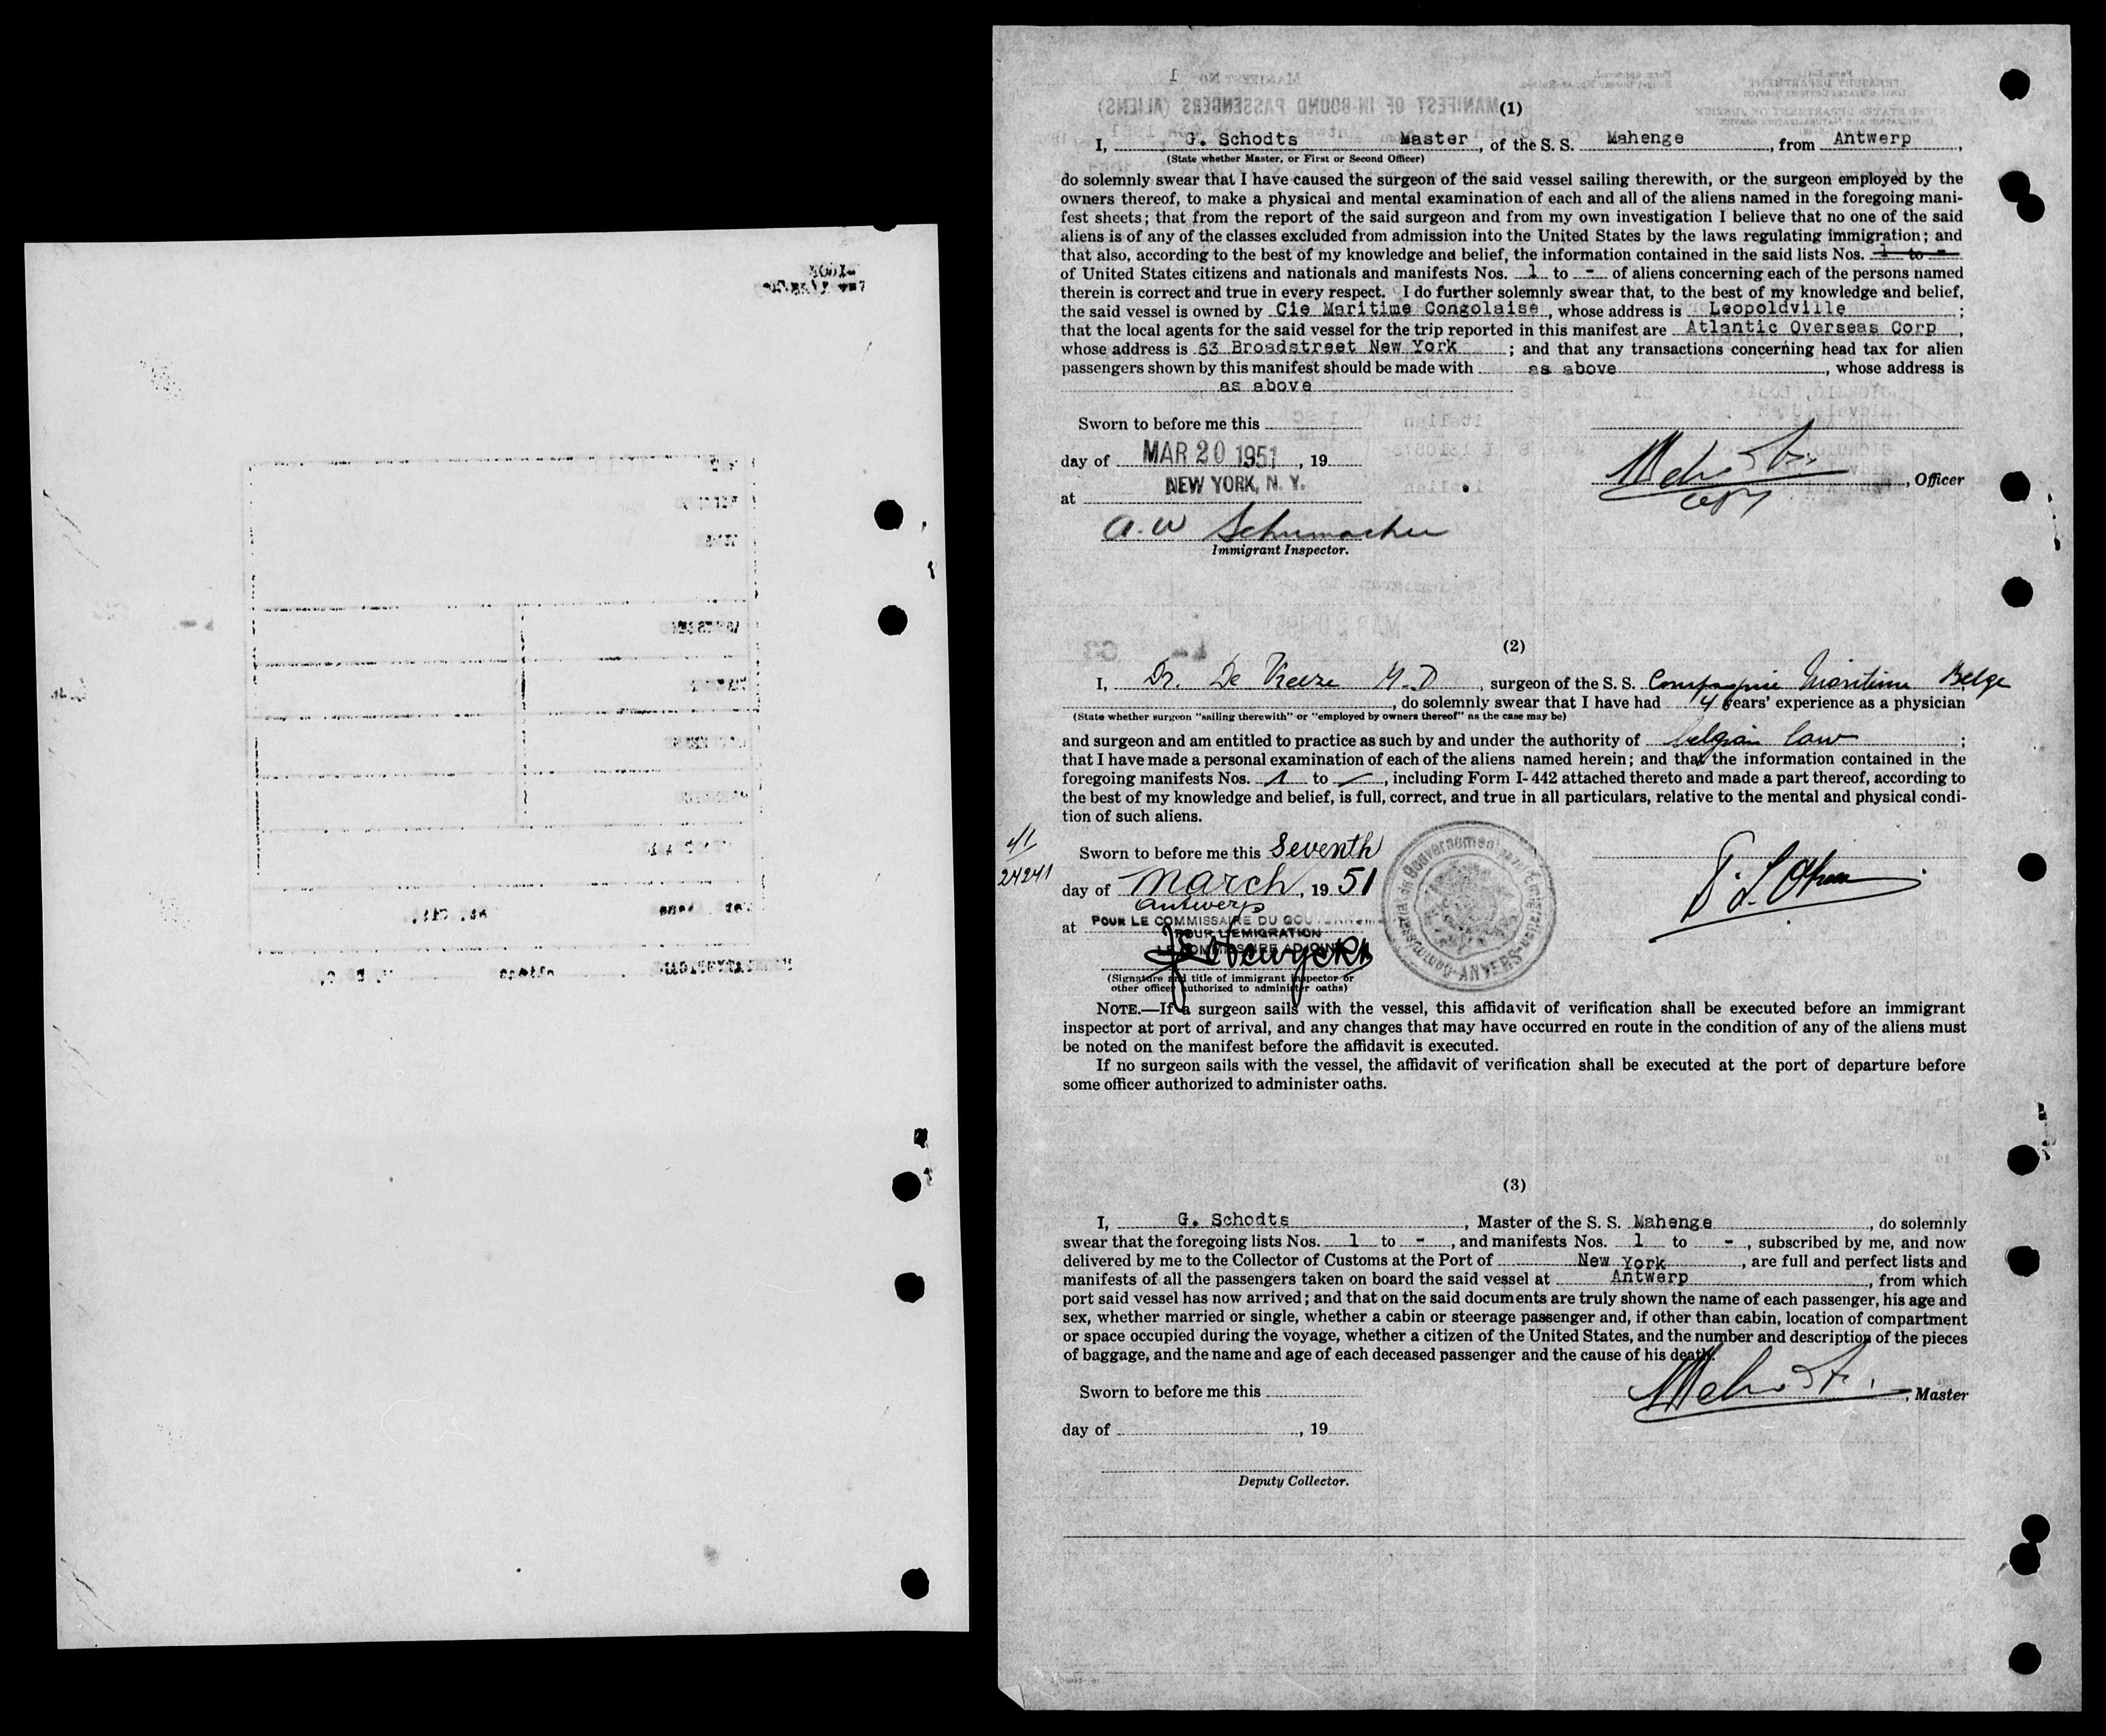 (1)
I, G. Schodts Master, of the S. S. Mahenge, from Antwerp,
(State whether Master, or First or Second Officer)
do solemnly swear that I have caused the surgeon of the said vessel sailing therewith, or the surgeon employed by the
owners thereof, to make a physical and mental examination of each and all of the aliens named in the foregoing mani-
fest sheets; that from the report of the said surgeon and from my own investigation I believe that no one of the said
aliens is of any of the classes excluded from admission into the United States by the laws regulating immigration; and
that also, according to the best of my knowledge and belief, the information contained in the said lists Nos. 1 to -
of United States citizens and nationals and manifests Nos. 1 to - of aliens concerning each of the persons named
therein is correct and true in every respect. I do further solemnly swear that, to the best of my knowledge and belief,
the said vessel is owned by Cie Maritime Congolaise, whose address is Leopoldville;
that the local agents for the said vessel for the trip reported in this manifest are Atlantic Overseas Corp,
whose address is 63 Broadstreet New York; and that any transactions concerning head tax for alien
passengers shown by this manifest should be made with as above, whose address is
as above
Sworn to before me this
day of MAR 20 1951, 19
at NEW YORK, N. Y.
, Officer
A. W Schumacher
Immigrant Inspector.
(2)
I, Dr. De M.D, surgeon of the S. S. Compagnie Maritime Belge
, do solemnly swear that I have had 4 years' experience as a physician
(State whether surgeon "sailing therewith" or "employed by owners thereof" as the case may be)
and surgeon and am entitled to practice as such by and under the authority of belgian law;
that I have made a personal examination of each of the aliens named herein; and that the information contained in the
foregoing manifests Nos. 1 to -, including Form I-442 attached thereto and made a part thereof, according to
the best of my knowledge and belief, is full, correct, and true in all particulars, relative to the mental and physical condi-
tion of such aliens.
41
24241
Sworn to before me this Seventh
day of March, 19 51
Antwerp
at POUR LE COMMISSAIRE DU GOUVERNEMENT
POUR L'EMIGRATION
LE COMMISSAIRE ADJOINT
(Signature and title of immigrant inspector or
other officer authorized to administer oaths)
NOTE.—If a surgeon sails with the vessel, this affidavit of verification shall be executed before an immigrant
inspector at port of arrival, and any changes that may have occurred en route in the condition of any of the aliens must
be noted on the manifest before the affidavit is executed.
If no surgeon sails with the vessel, the affidavit of verification shall be executed at the port of departure before
some officer authorized to administer oaths.
(3)
I, G. Schodts, Master of the S. S. Mahenge, do solemnly
swear that the foregoing lists Nos. 1 to -, and manifests Nos. 1 to -, subscribed by me, and now
delivered by me to the Collector of Customs at the Port of New York, are full and perfect lists and
manifests of all the passengers taken on board the said vessel at Antwerp, from which
port said vessel has now arrived; and that on the said documents are truly shown the name of each passenger, his age and
sex, whether married or single, whether a cabin or steerage passenger and, if other than cabin, location of compartment
or space occupied during the voyage, whether a citizen of the United States, and the number and description of the pieces
of baggage, and the name and age of each deceased passenger and the cause of his death.
Sworn to before me this
, Master
day of , 19
Deputy Collector.